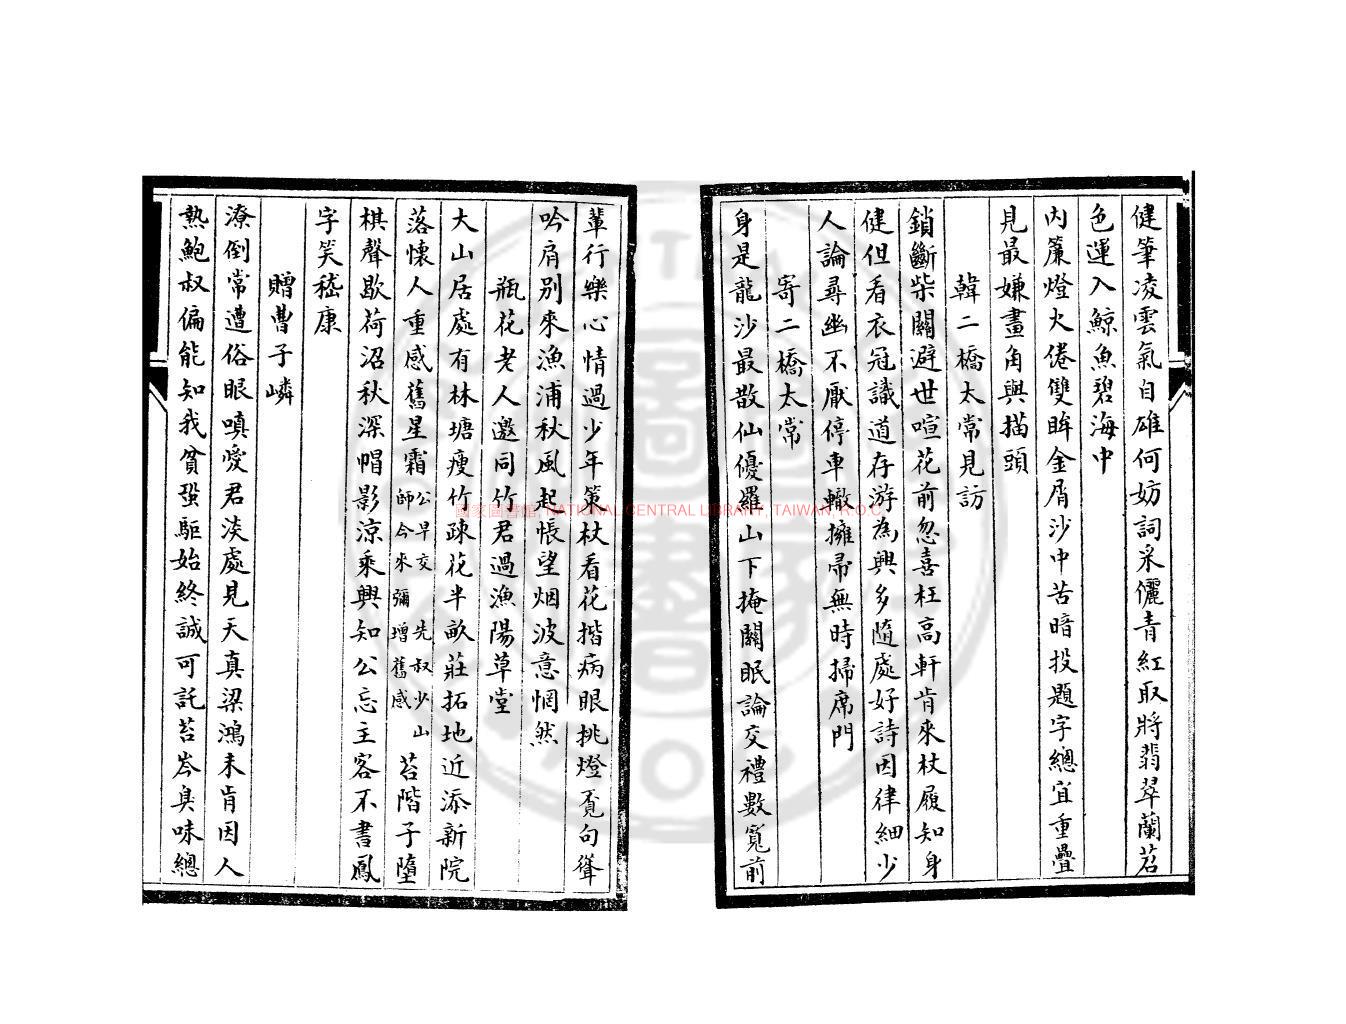 健筆凌雲氣自雄何妨詞采儷青紅取將翡翠蘭苕
色運入鯨魚碧海中
內簾燈火倦雙眸金屑沙中苦暗投題字總宜重疊
見最嫌畫角與描頭
韓二橋太常見訪
鎖斷柴關避世喧花前忽喜枉高軒肯來杖履知身
健但看衣冠識道存游為興多隨處好詩因律細少
人論尋幽不厭停車轍擁帚無時掃席門
寄二橋太常
身是龍沙最散仙優羅山下掩關眠論交禮數寬前
輩行樂心情過少年策杖看花揩病眼挑燈覓句聳
吟肩別來漁浦秋風起悵望烟波意惘然
瓶花老人邀同竹君過漁陽草堂
大山居處有林塘瘦竹疎花半畝莊拓地近添新院
落懷人重感舊星霜公早交先叔少山師今來彌增舊感苔階子墮
棋聲歇荷沼秋深帽影涼乘興知公忘主客不書鳳
字笑嵇康
贈曹子嶙
潦倒常遭俗眼嗔愛君淡處見天真梁鴻未肯因人
熱鮑叔偏能知我貧蛩駏始終誠可託苔岑臭味總
國家圖書館, NATIONAL CENTRAL LIBRARY, TAIWAN, R.O.C